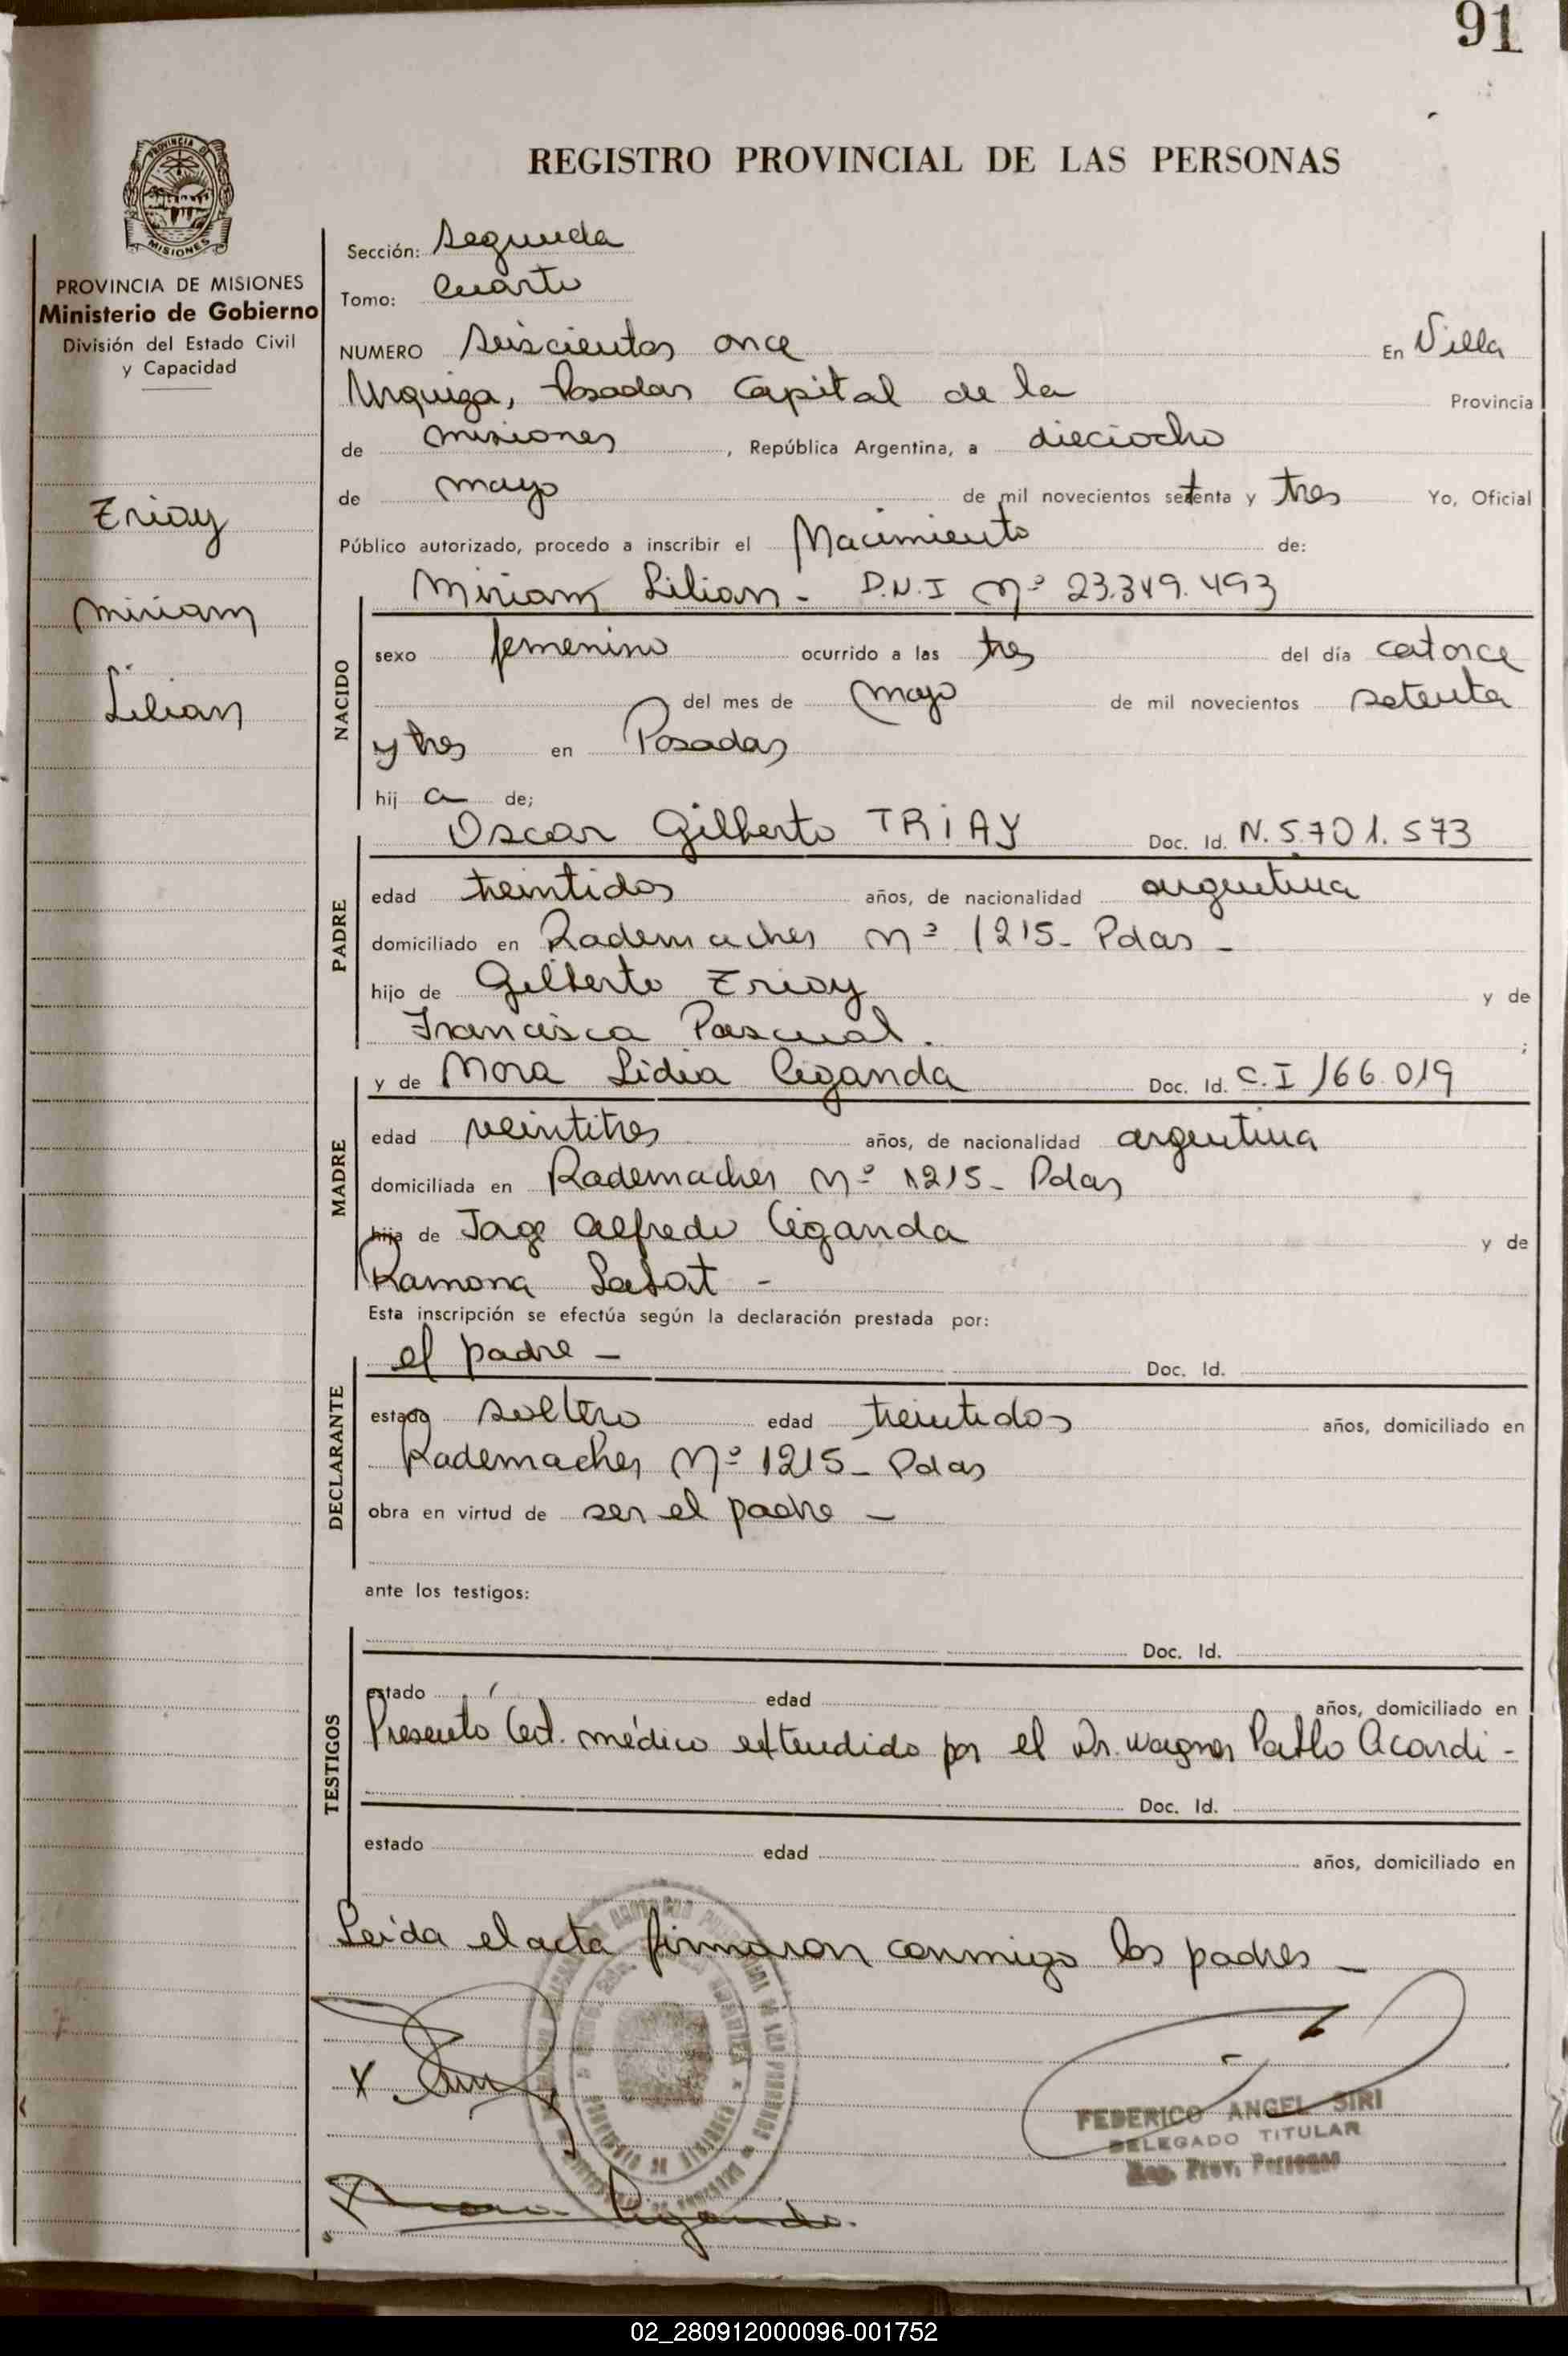 91
PROVINCIA DE
MISIONES
REGISTRO PROVINCIAL DE LAS PERSONAS
PROVINCIA DE MISIONES
Ministerio de Gobierno
División del Estado Civil
y Capacidad
Triay
Miriam
Lilian
Sección: Segunda
Tomo: Cuarto
NUMERO Seiscientos once En Villa
Urquiza, Posadas Capital de la Provincia
de Misiones, República Argentina, a dieciocho
de mayo de mil novecientos setenta y tres Yo, Oficial
Público autorizado, procedo a inscribir el Nacimiento de:
Miriam Lilian - D.N.I Nº 23.349.493
NACIDO
sexo femenino ocurrido a las tres del día catorce
del mes de mayo de mil novecientos setenta
y tres en Posadas
hij a de;
Oscar Gilberto TRIAY Doc. Id. N. 5.701.573
PADRE
edad treintidos años, de nacionalidad argentina
domiciliado en Rademacher Nº 1215- Pdas -
hijo de Gilberto Triay y de
Francisca Pascual. ;
y de Nora Lidia Ciganda Doc. Id. C.I 166.019
MADRE
edad veintitres años, de nacionalidad argentina
domiciliada en Rademacher Nº 1215- Pdas
hija de Jorge Alfredo Ciganda y de
Ramona -
Esta inscripción se efectúa según la declaración prestada por:
el padre - Doc. Id.
DECLARANTE
estado soltero edad treintidos años, domiciliado en
Rademacher Nº 1215- Pdas
obra en virtud de ser el padre -
ante los testigos:
Doc. Id.
TESTIGOS
estado edad años, domiciliado en
Presentó Cert. médico extendido por el Dr. Wagner Pablo Acardi -
Doc. Id.
estado edad años, domiciliado en
Leída el acta firmaron conmigo los padres -
X
FEDERICO ANGEL SIRI
DELEGADO TITULAR
Reg. Prov. Personas
Nora Ciganda.
02_280912000096-001752